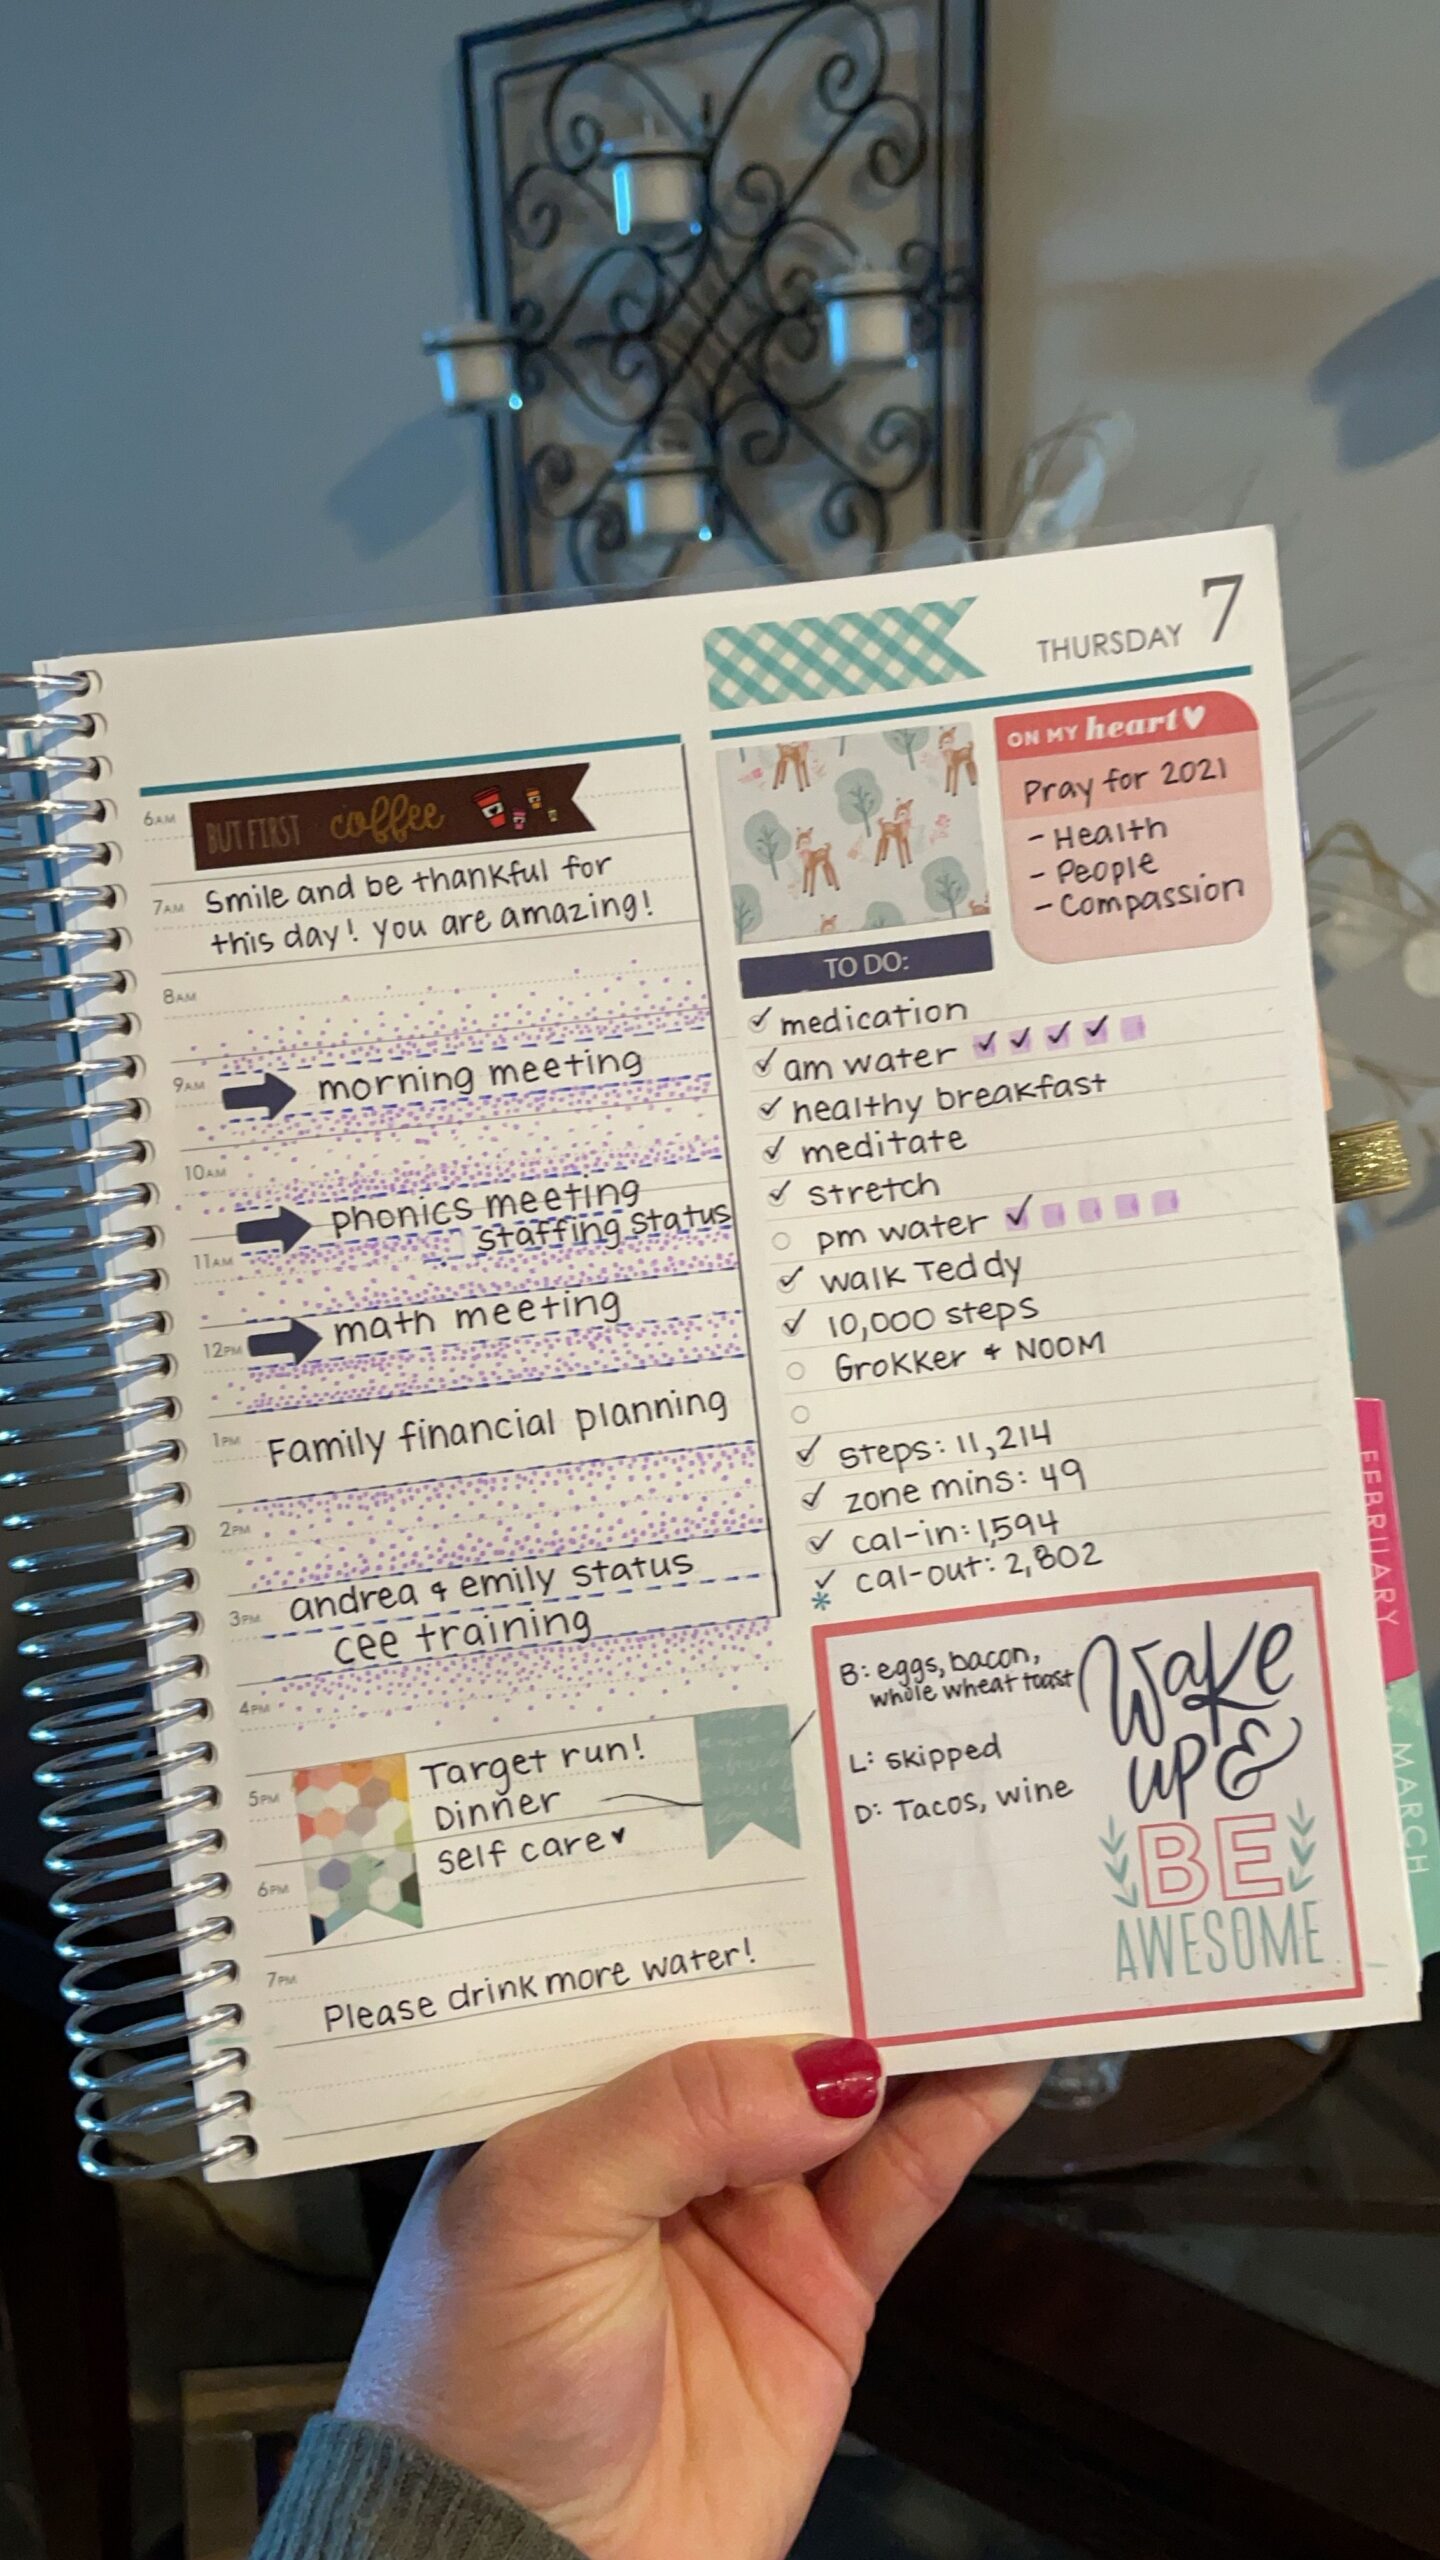 THURSDAY 7
6AM
BUT FIRST coffee
7AM
Smile and be thankful for
this day! you are amazing!
8AM
9AM
morning meeting
10AM
phonics meeting
staffing status
11AM
math meeting
12PM
Family financial planning
1PM
2PM
andrea & emily status
3PM
cee training
4PM
Target run!
5PM
Dinner
self care♥
6PM
7PM
Please drink more water!
ON MY heart
Pray for 2021
- Health
- People
- Compassion
TO DO:
✓ medication
✓ am water ✓ ✓ ✓ ✓
✓ healthy breakfast
✓ meditate
✓ stretch
pm water ✓
✓ walk Teddy
✓ 10,000 steps
Grokker & NOOM
✓ steps: 11,214
✓ zone mins: 49
✓ cal-in: 1,594
✓ cal-out: 2,802
*
B: eggs, bacon,
whole wheat toast
L: skipped
D: Tacos, wine
Wake
up &
BE
AWESOME
FEBRUARY
MARCH